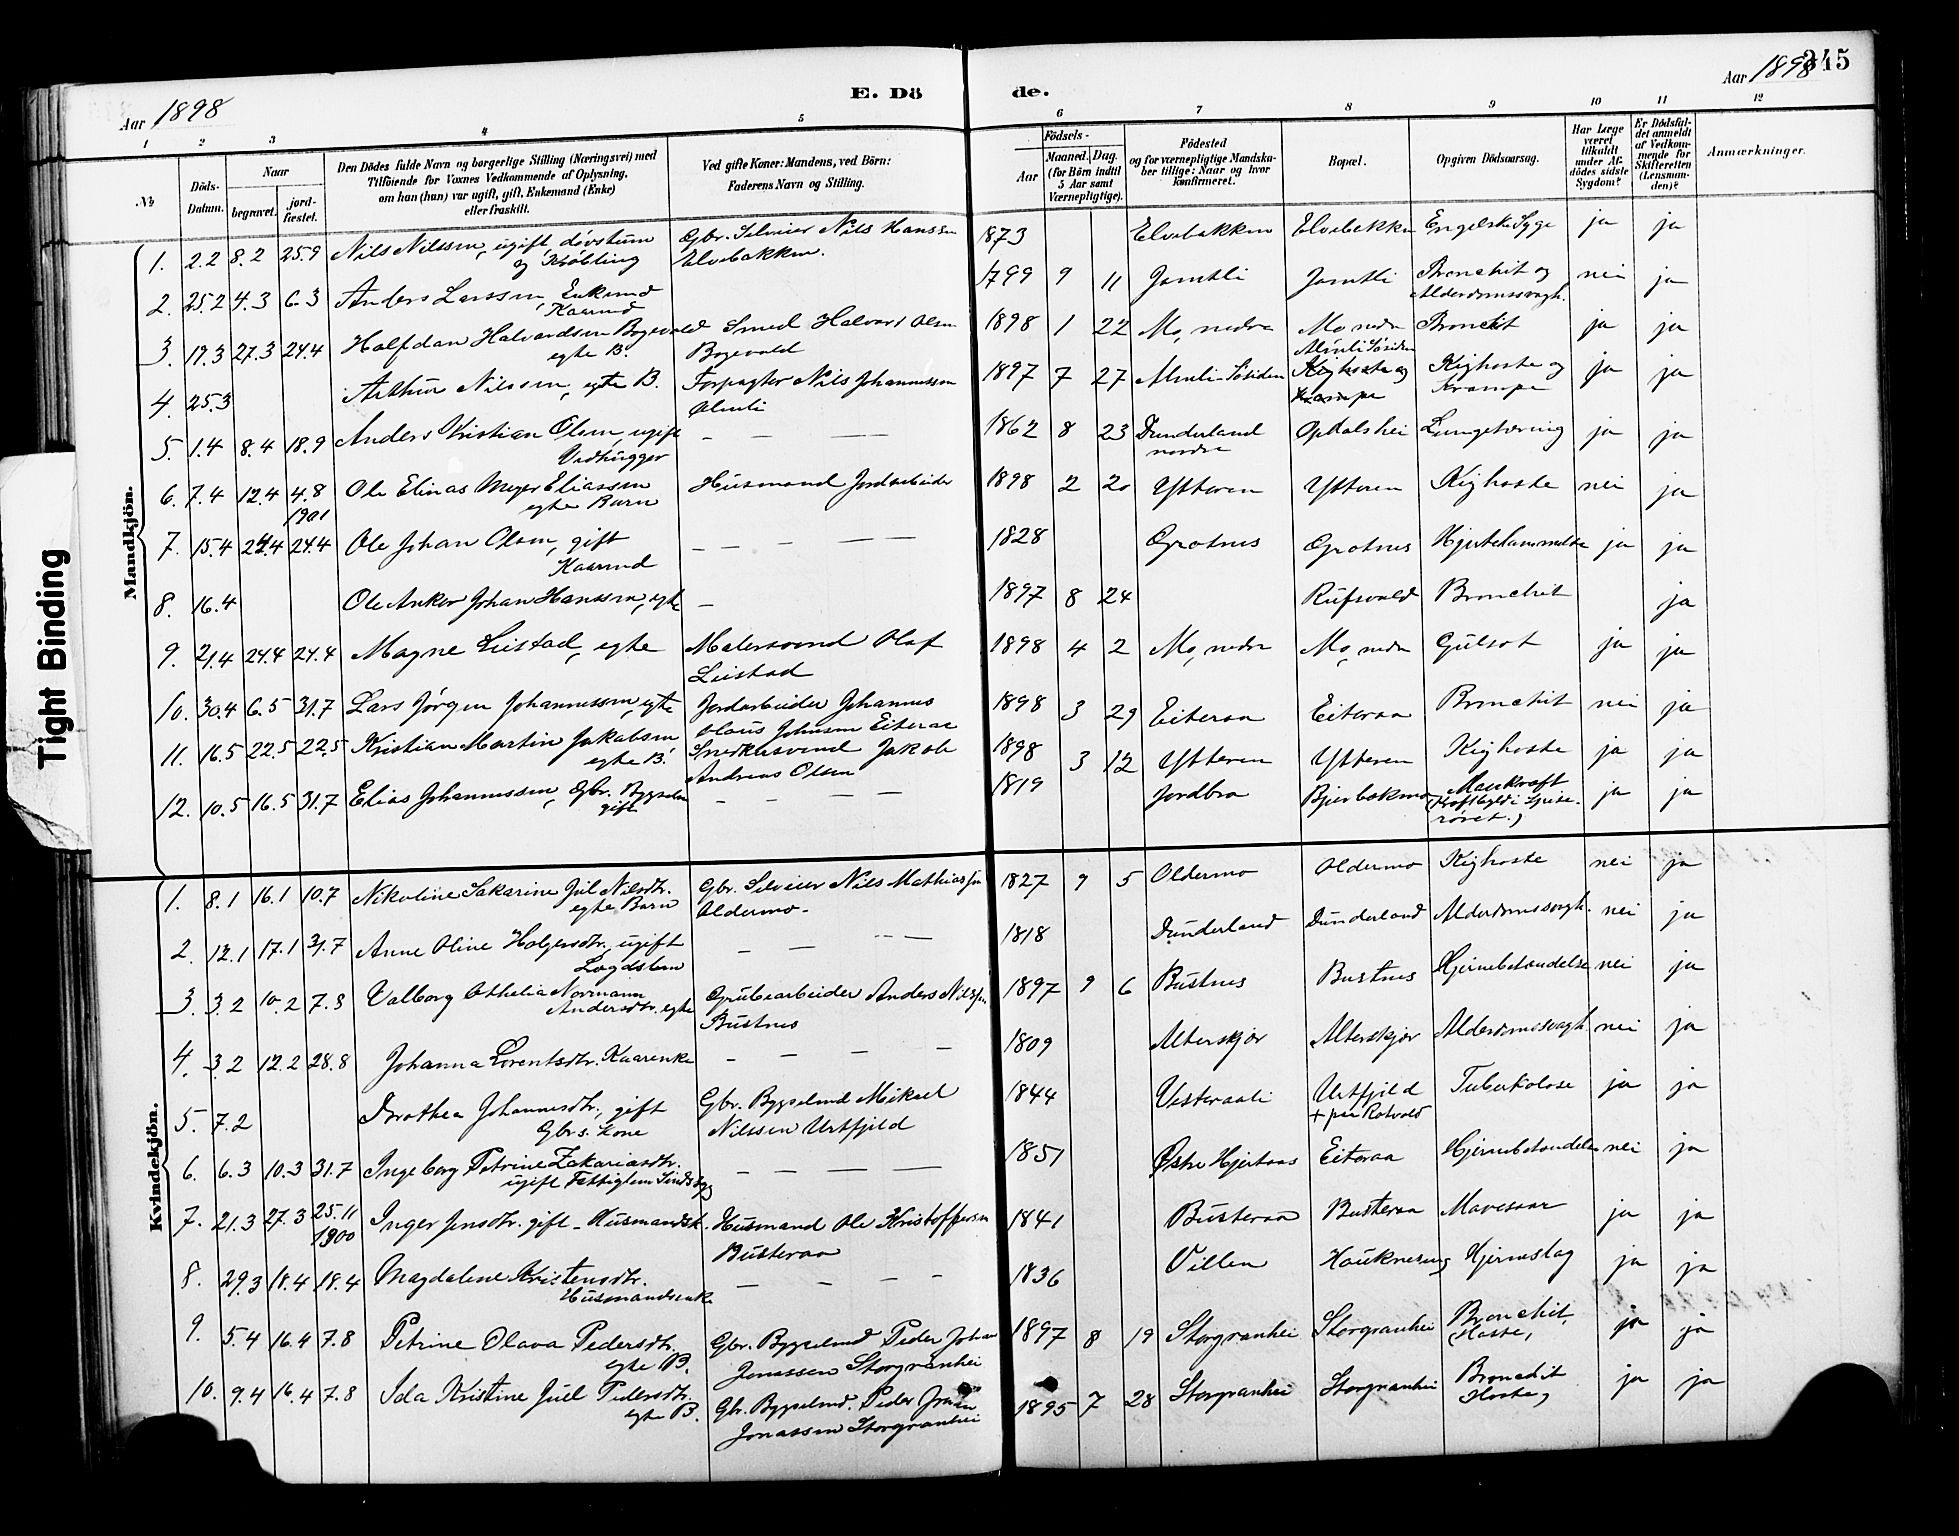 Aar 1898
E. Dö
de.
Aar 1898
345
1 2 3 4 5 6 7 8 9 10 11 12
No
Döds-
Datum.
Naar
begravet.
jord-
fæstet.
Den Dödes fulde Navn og borgerlige Stilling (Næringsvei) med
Tilföiende for Voxnes Vedkommende af Oplysning,
om han (hun) var ugift, gift, Enkemand (Enke)
eller fraskilt.
Ved gifte Koner: Mandens, ved Börn:
Faderens Navn og Stilling.
Födsels-
Aar
Maaned.
Dag.
(for Börn indtil
5 Aar samt
Værnepligtige).
Födested
og for værnepligtige Mandska-
ber tillige: Naar og hvor
konfirmeret.
Bopæl.
Opgiven Dödsaarsag.
Har Læge
været
tilkaldt
under Af-
dödes sidste
Sygdom?
Er Dödsfal-
det anmeldt
af Vedkom-
mende for
Skifteretten
(Lensman-
den)?
Anmærkninger.
Tight Binding
Mandkjön.
1. 2.2 8.2 25.9 Nils Nilssen, ugift, døvstum Gbr. Selveier Nils Hanssen 1873 Elvebakken Elvebakken Engelsk Syge ja ja
og Krøbling Elvebakken.
2. 25.2 4.3 6.3 Anders Larssen, Enkemd 1799 9 11 Jamtli Jamtli Bronchit og nei ja
Kaarmd Alderdomssvagh.
3. 19.3 27.3 24.4 Halfdan Halvardsen Bogevold Smed Halvard Olsen 1898 1 22 Mo, nedre Mo, nedre Bronchit ja ja
egte B. Bogevold
4. 25.3 Arthur Nilssen, egte B. Forpagter Nils Johannessen 1897 7 27 Alnli Søsiden Alnli Søsiden Kighoste og ja ja
Alnli Kighoste og Krampe Krampe
5. 1.4 8.4 18.9 Anders Kristian Olsen, ugift — — — — 1862 8 23 Dunderland Opdalshei Lungetæring ja ja
Vedhugger nordre
6. 7.4 12.4 4.8 Ole Elinas Meyer Eliassen Husmand Jordarbeider 1898 2 20 Ytteren Ytteren Kighoste nei ja
1901 egte Barn
7. 15.4 24.4 24.4 Ole Johan Olsen, gift — — — — — 1828 Grotnes Grotnes ja ja
Kaarmd
8. 16.4 Ole Anker Johan Hanssen, egte — 1897 8 24 Rufsvold Bronchit ja
9. 21.4 24.4 24.4 Magne Leistad, egte Malersvend Olaf 1898 4 2 Mo, nedre Mo, nedre Gulsot ja ja
Leistad
10. 30.4 6.5 31.7 Lars Jørgen Johannessen, egte Jordarbeider Johannes 1898 3 29 Eiteraa Eiteraa Bronchit nei ja
Olaus Johnsen Eiteraa
11. 16.5 22.5 22.5 Kristian Martin Jakobsen Snedkersvend Jakob 1898 3 12 Ytteren Ytteren Kighoste ja ja
egte B. Andreas Olsen
12. 10.5 16.5 31.7 Elias Johannessen, Gbr. Bygselm — — — — 1819 Jordbro Bjerbækmo Mavekræft ja ja
gift (Kræftbyld i Spise-
røret.)
Kvindekjön.
1. 8.1 16.1 10.7 Nikoline Sakarine Jul Nilsdtr. Gbr. Selveier Nils Mathiassen 1827 9 5 Oldermo Oldermo Kighoste nei ja
egte Barn Oldermo.
2. 12.1 17.1 31.7 Anne Oline Holgersdtr. ugift — — — — 1818 Dunderland Dunderland Alderdomssvagh. nei ja
Lægdslem
3. 3.2 10.2 7.8 Valborg Othelia Normann Grubearbeider Anders Nilssen 1897 9 6 Bustnes Bustnes Hjernebetændelse nei ja
Andersdtr. egte Bustnes
4. 3.2 12.2 28.8 Johanna Lorentsdtr. Kaarenke — — — — 1809 Alterskjær Alterskjær Alderdomssvagh. nei ja
5. 7.2 Dorothea Johannesdtr., gift Gbr. Bygselmd Mikael 1844 Vesteraali Urtfjeld Tuberkolose ja ja
Gbr.s. Kone Nilssen Urtfjeld + paa Rotvold
6. 6.3 10.3 31.7 Ingeborg Petrine Zakariasdtr. — — — — 1851 Østre Hjertaas Eiteraa Hjernebetændelse nei ja
ugift Fattiglem Sindssyg
7. 21.3 27.3 25.11 Inger Jensdtr. gift - Husmandsk. Husmand Ole Kristoffersen 1841 Busteraa Busteraa Mavesaar ja ja
1900 Busteraa
8. 29.3 18.4 18.4 Magdalene Kristensdtr. — — — — 1836 Villen Hauknesvog Hjerneslag ja ja
Husmandsenke
9. 5.4 16.4 7.8 Petrine Olava Pedersdtr. Gbr. Bygselmd Peder Johan 1897 8 19 Storgranhei Storgranhei Bronchit, ja ja
egte B. Jonassen Storgranhei (Hoste)
10. 9.4 16.4 7.8 Ida Kristine Juel Pedersdtr. Gbr. Bygselmd. Peder Johan 1895 7 28 Storgranhei Storgranhei Bronchit ja ja
egte B. Jonassen Storgranhei (Hoste)